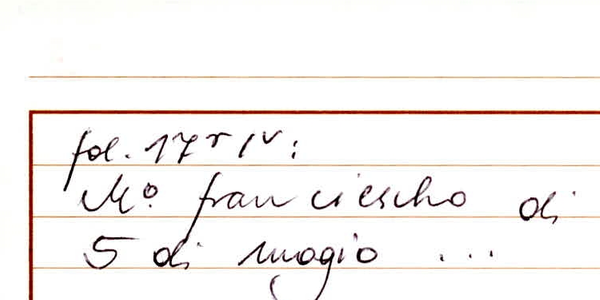 fol. 17r/v:
Mo. franciescho di
5 di magio ...